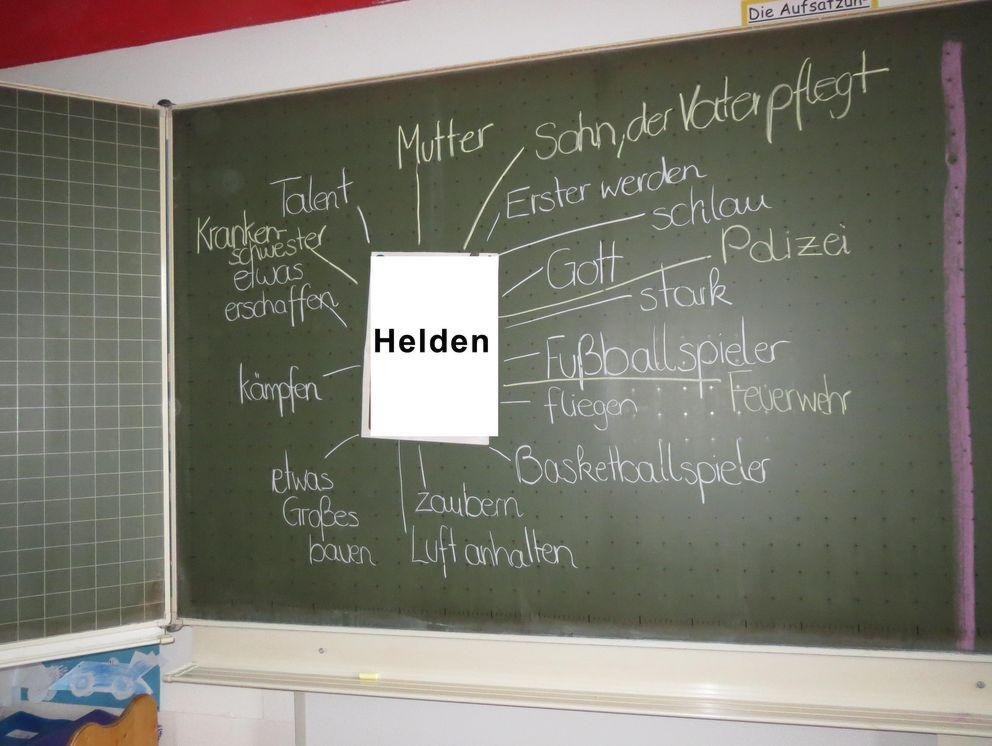 Die Aufsatzun-
Mutter
Sohn, der Vater pflegt
Talent
Erster werden
schlau
Kranken-
schwester
etwas
erschaffen
Gott
Polizei
stark
Helden
Fußballspieler
kämpfen
fliegen
Feuerwehr
Basketballspieler
etwas
Großes
bauen
zaubern
Luft anhalten